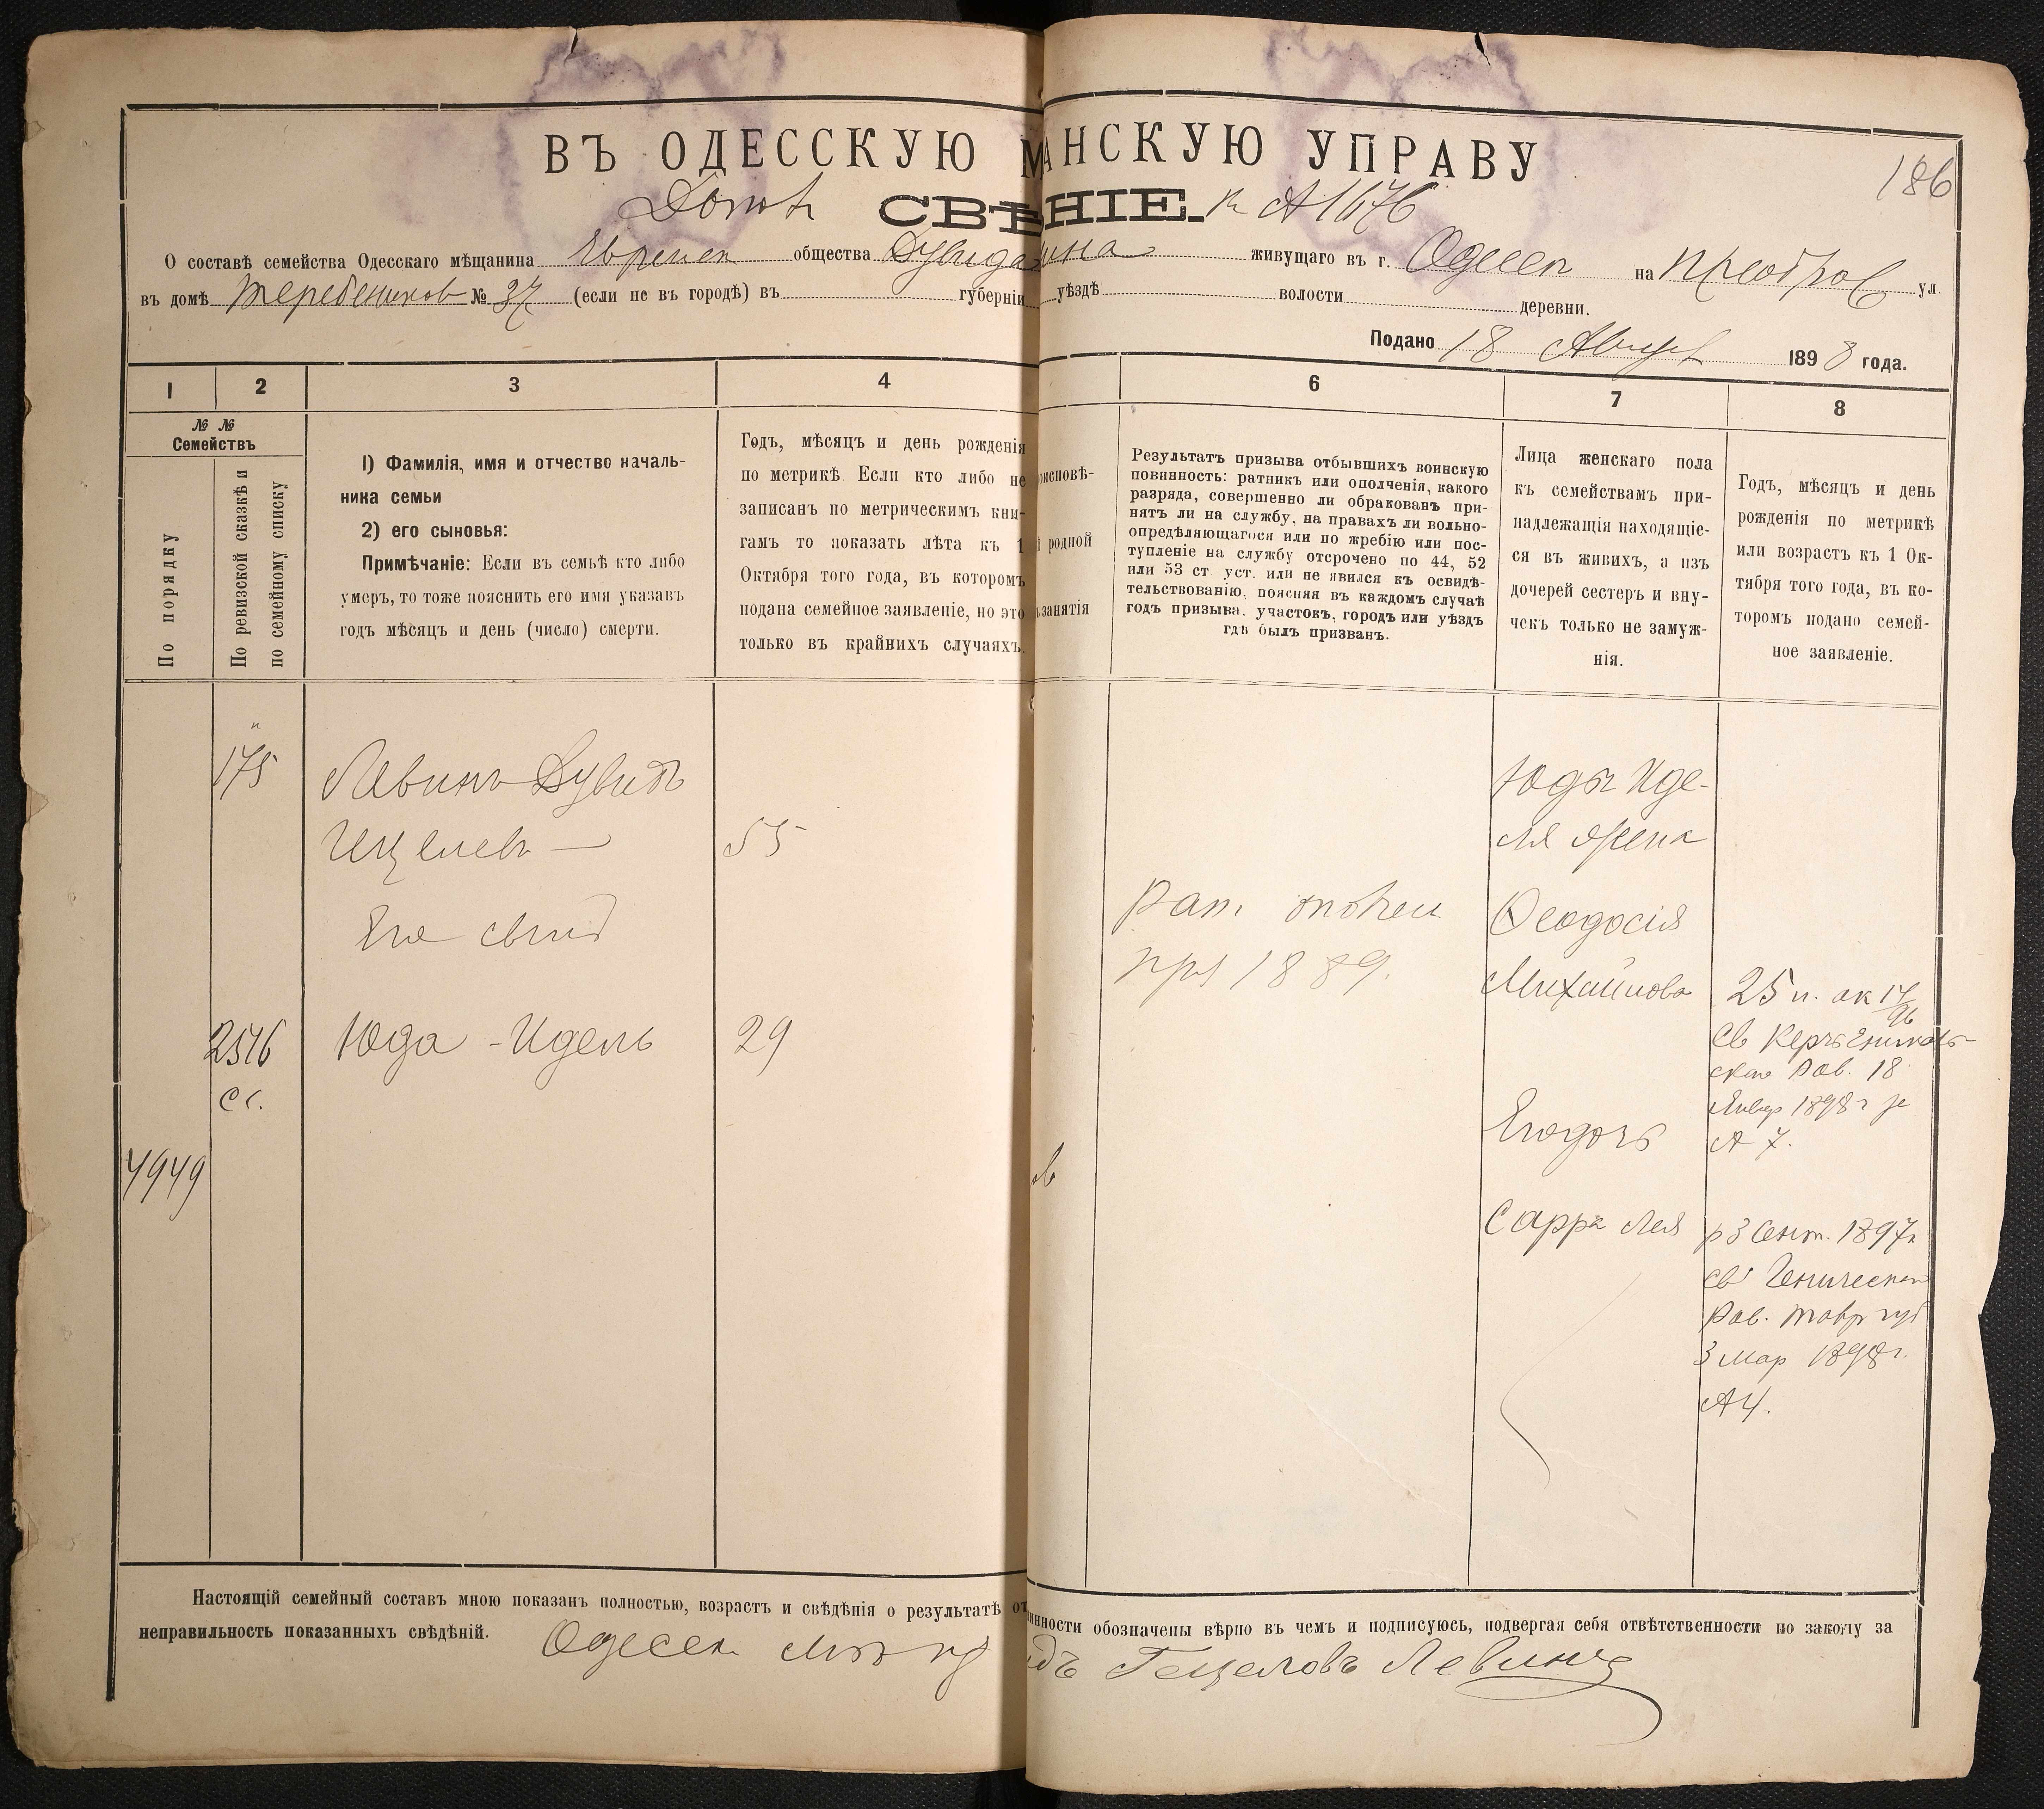 ВЪ ОДЕССКУЮ М АНСКУЮ УПРАВУ
186
СВѢ НІЕ. А 1676
О составѣ семейства Одесскаго мѣщанина Евреиск общества Дувида ина живущаго въ г. Одессе на Преображ ул.
въ домѣ Теребеников № 37 (если не въ городѣ) въ губерніи уѣздѣ волости деревни.
Подано 18 Август 1898 года.
1 2 3 4 6 7 8
№ №
Семействъ
По порядку
По ревизской сказкѣ и
по семейному списку
1) Фамилія, имя и отчество началь-
ника семьи
2) его сыновья:
Примѣчаніе: Если въ семьѣ кто либо
умеръ, то тоже пояснить его имя указавъ
годъ мѣсяцъ и день (число) смерти.
Годъ, мѣсяцъ и день рожденія
по метрикѣ. Если кто либо не
записанъ по метрическимъ кни-
гамъ то показать лѣта къ 1
Октября того года, въ которомъ
подана семейное заявленіе, но это
только въ крайнихъ случаяхъ.
оисповѣ-
й родной
занятія
Результатъ призыва отбывшихъ воинскую
повинность: ратникъ или ополченія, какого
разряда, совершенно ли обракованъ при-
нятъ ли на службу, на правахъ ли вольно-
опредѣляющагося или по жребію или пос-
тупленіе на службу отсрочено по 44, 52
или 53 ст уст. или не явился къ освидѣ-
тельствованію. поясняя въ каждомъ случаѣ
годъ призыва. участокъ, городъ или уѣздъ
гдѣ былъ призванъ.
Лица женскаго пола
къ семействамъ при-
надлежащія находящіе-
ся въ живихъ, а изъ
дочерей сестеръ и вну-
чекъ только не замуж-
нія.
Годъ, мѣсяцъ и день
рожденія по метрикѣ
или возрастъ къ 1 Ок-
тября того года, въ ко-
торомъ подано семей-
ное заявленіе.
175 Левинъ Дувидъ
Гецелев — 55
Его сынъ
2576 Юда - Идель 29
Сс.
4949
Рат. ополч
пр 1889.
Юды Иде-
ля жена
Ѳеодосія
Михайлова
Его дочь
Сарра Лея
25 л. ак 17/96
Св Керчь Еникаль-
ское Рав. 18
Январ 1898 г за
А 7.
р 3 Сент. 1897г
св Геническаго
Рав. Тавр губ
3 Мар 1898 г.
А 4.
Настоящій семейный составъ мною показанъ полностью, возрастъ и свѣдѣнія о результатѣ от инности обозначены вѣрно въ чемъ и подписуюсь, подвергая себя отвѣтственности по закону за
неправильность показанныхъ свѣдѣній.
Одесск мѣщ дъ Гецеловъ Левинъ